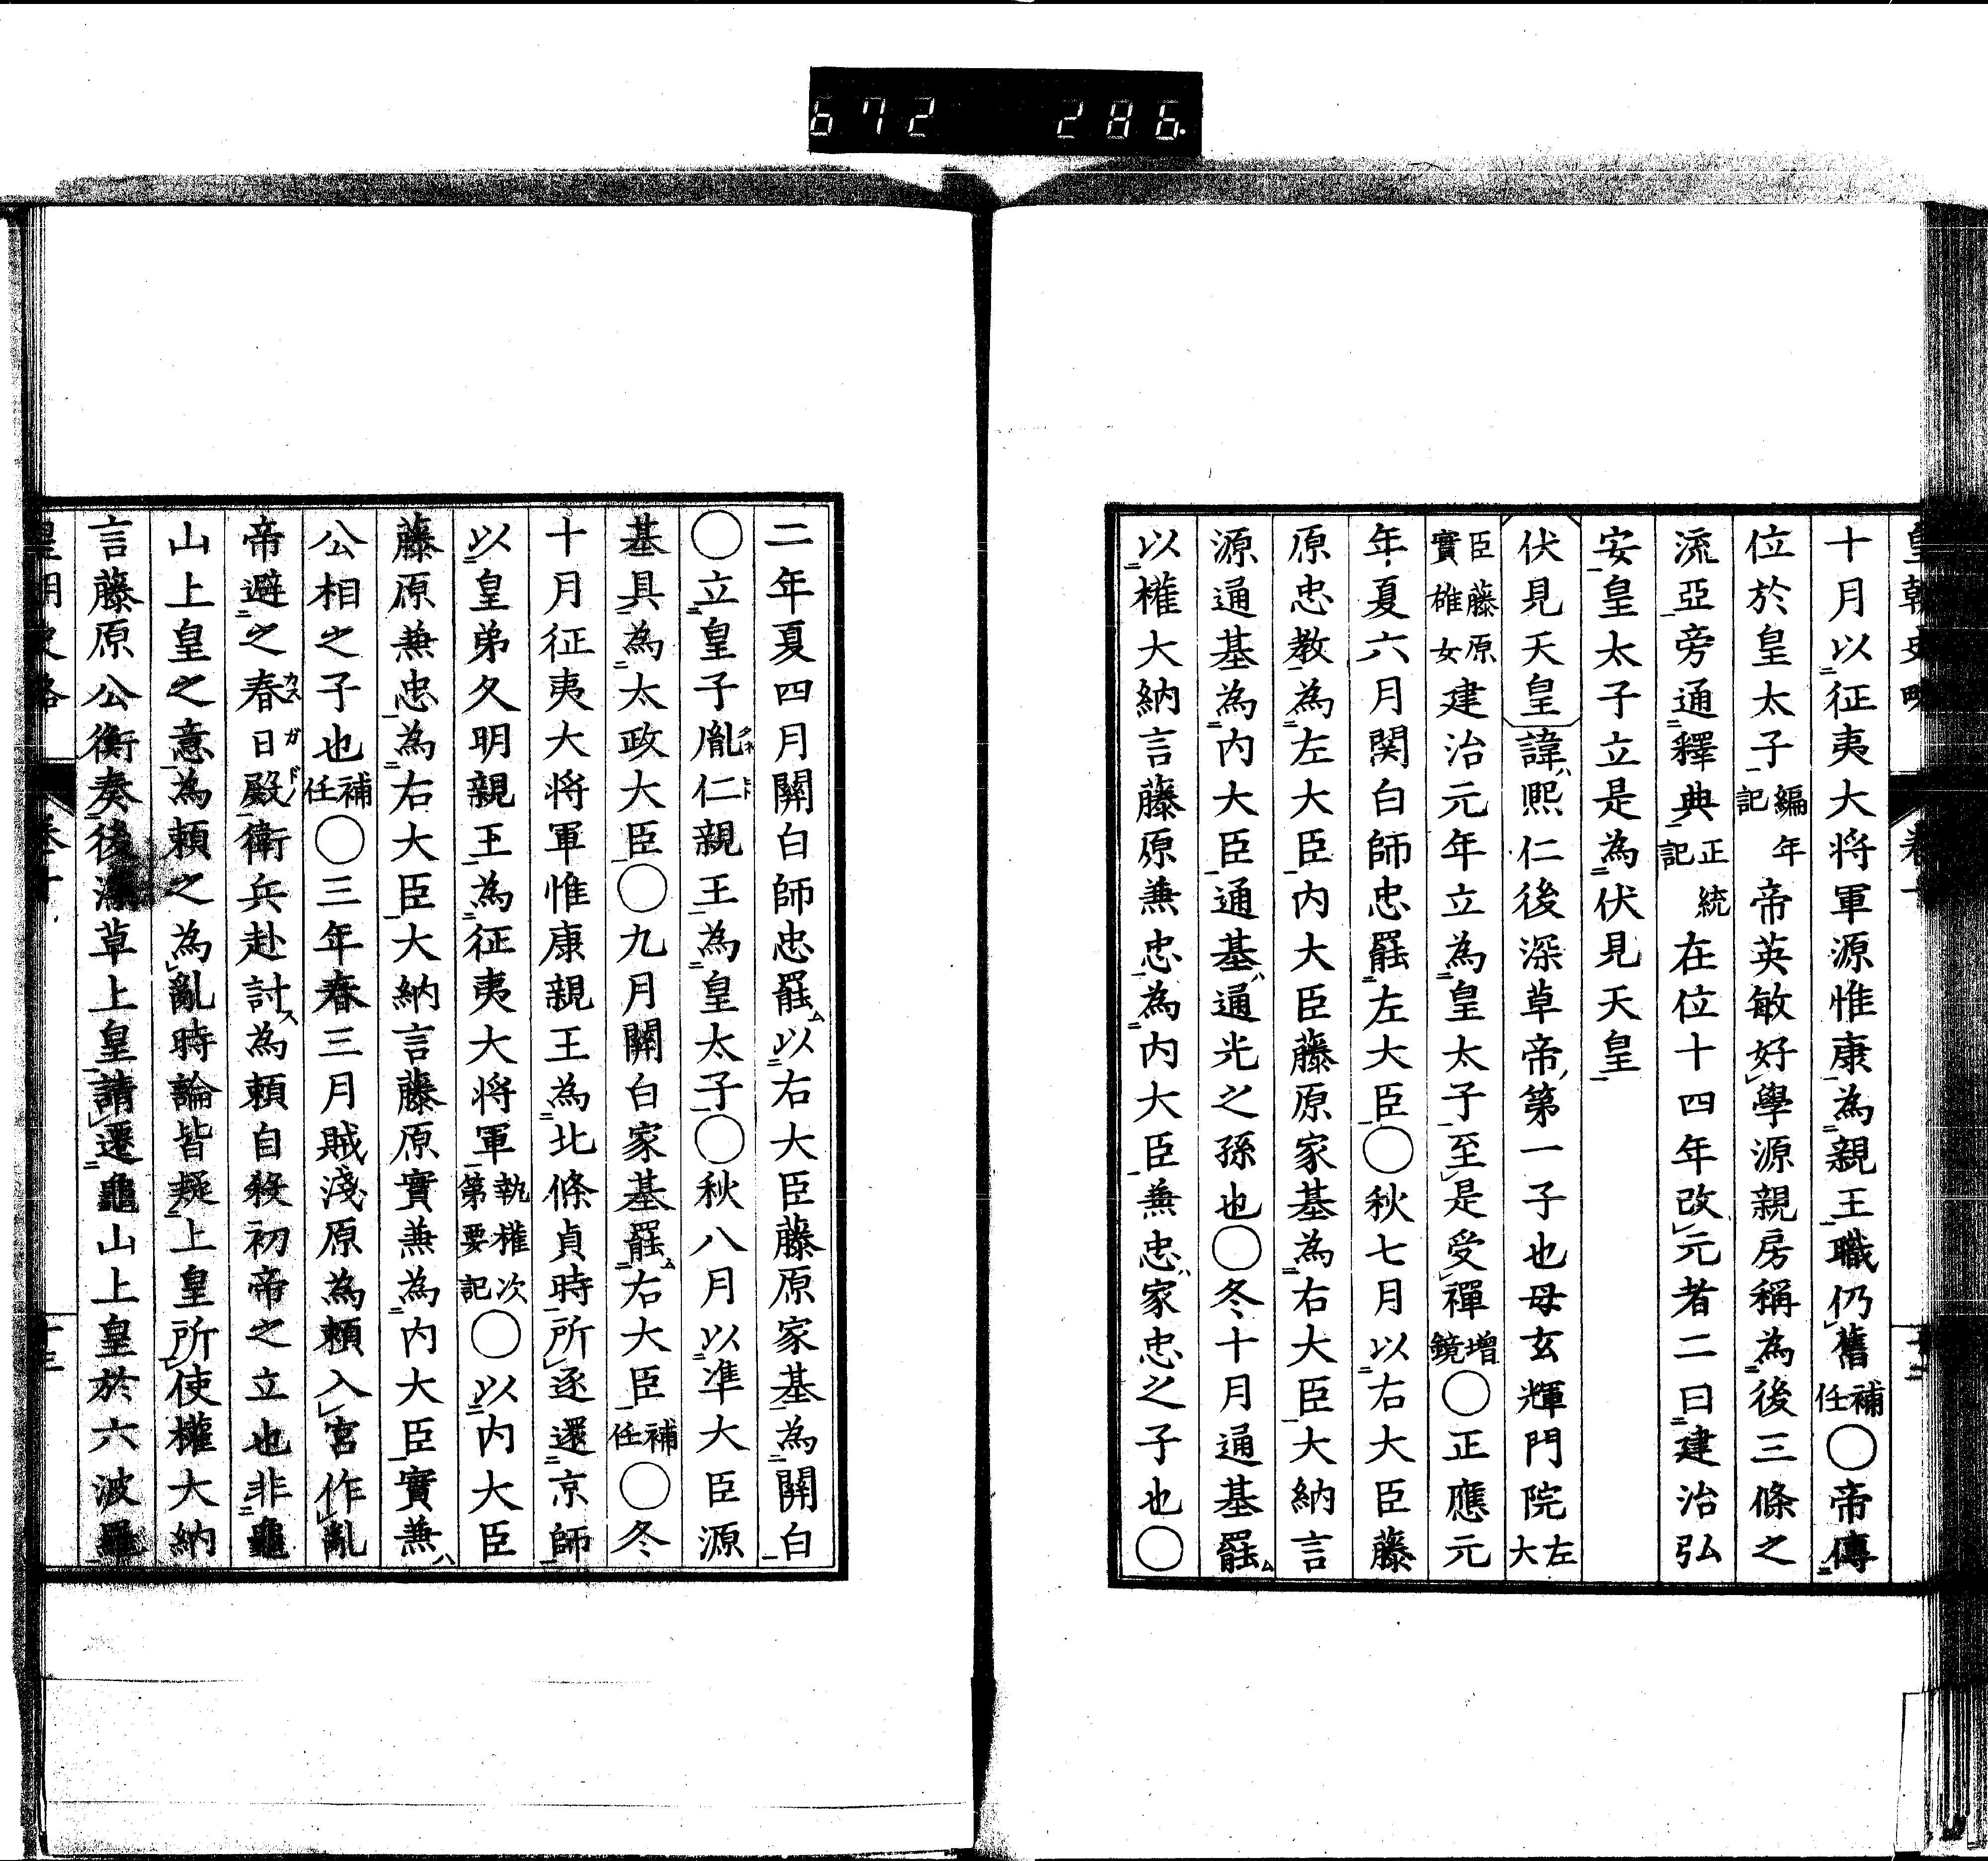 672 286.
皇朝史略 卷十
十月以征夷大将軍源惟康為親王職仍舊補任〇帝傳
位於皇太子編年記帝英敏好學源親房稱為後三條之
流亞旁通釋典正統記在位十四年改元者二曰建治弘
安皇太子立是為伏見天皇
伏見天皇諱熙仁後深草帝第一子也母玄輝門院左大
臣藤原實雄女建治元年立為皇太子至是受禪增鏡〇正應元
年夏六月関白師忠罷左大臣〇秋七月以右大臣藤
原忠教為左大臣内大臣藤原家基為右大臣大納言
源通基為内大臣通基通光之孫也〇冬十月通基罷
以權大納言藤原兼忠為内大臣兼忠家忠之子也〇
二年夏四月關白師忠罷以右大臣藤原家基為關白
〇立皇子胤仁親王為皇太子〇秋八月以準大臣源
基具為太政大臣〇九月關白家基罷右大臣補任〇冬
十月征夷大将軍惟康親王為北條貞時所逐還京師
以皇弟久明親王為征夷大将軍執權次第要記〇以内大臣
藤原兼忠為右大臣大納言藤原實兼為内大臣實兼
公相之子也補任〇三年春三月賊淺原為頼入宮作亂
帝避之春日殿衛兵赴討為頼自殺初帝之立也非龜
山上皇之意為頼之為亂時論皆疑上皇所使權大納
言藤原公衡奏後深草上皇請遷龜山上皇於六波羅
皇朝史略 卷十 十三